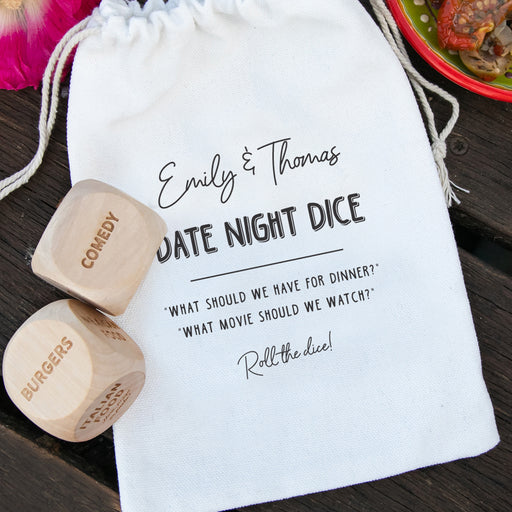 Emily & Thomas
DATE NIGHT DICE
"WHAT SHOULD WE HAVE FOR DINNER?"
"WHAT MOVIE SHOULD WE WATCH?"
Roll the dice!
COMEDY
BURGERS
ITALIAN
FOOD